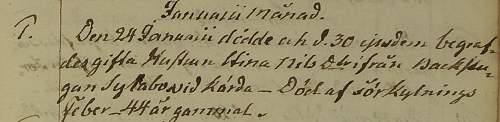 Januarii månad.
1. Den 24 Januarii dödde och d. 30 ejusdem begraf-
des gifta Hustrun Stina Nils Dtr ifrån Backstu-
gan Syllabo vid Kårda – Död af förkylnings
feber – 44 år gammal.